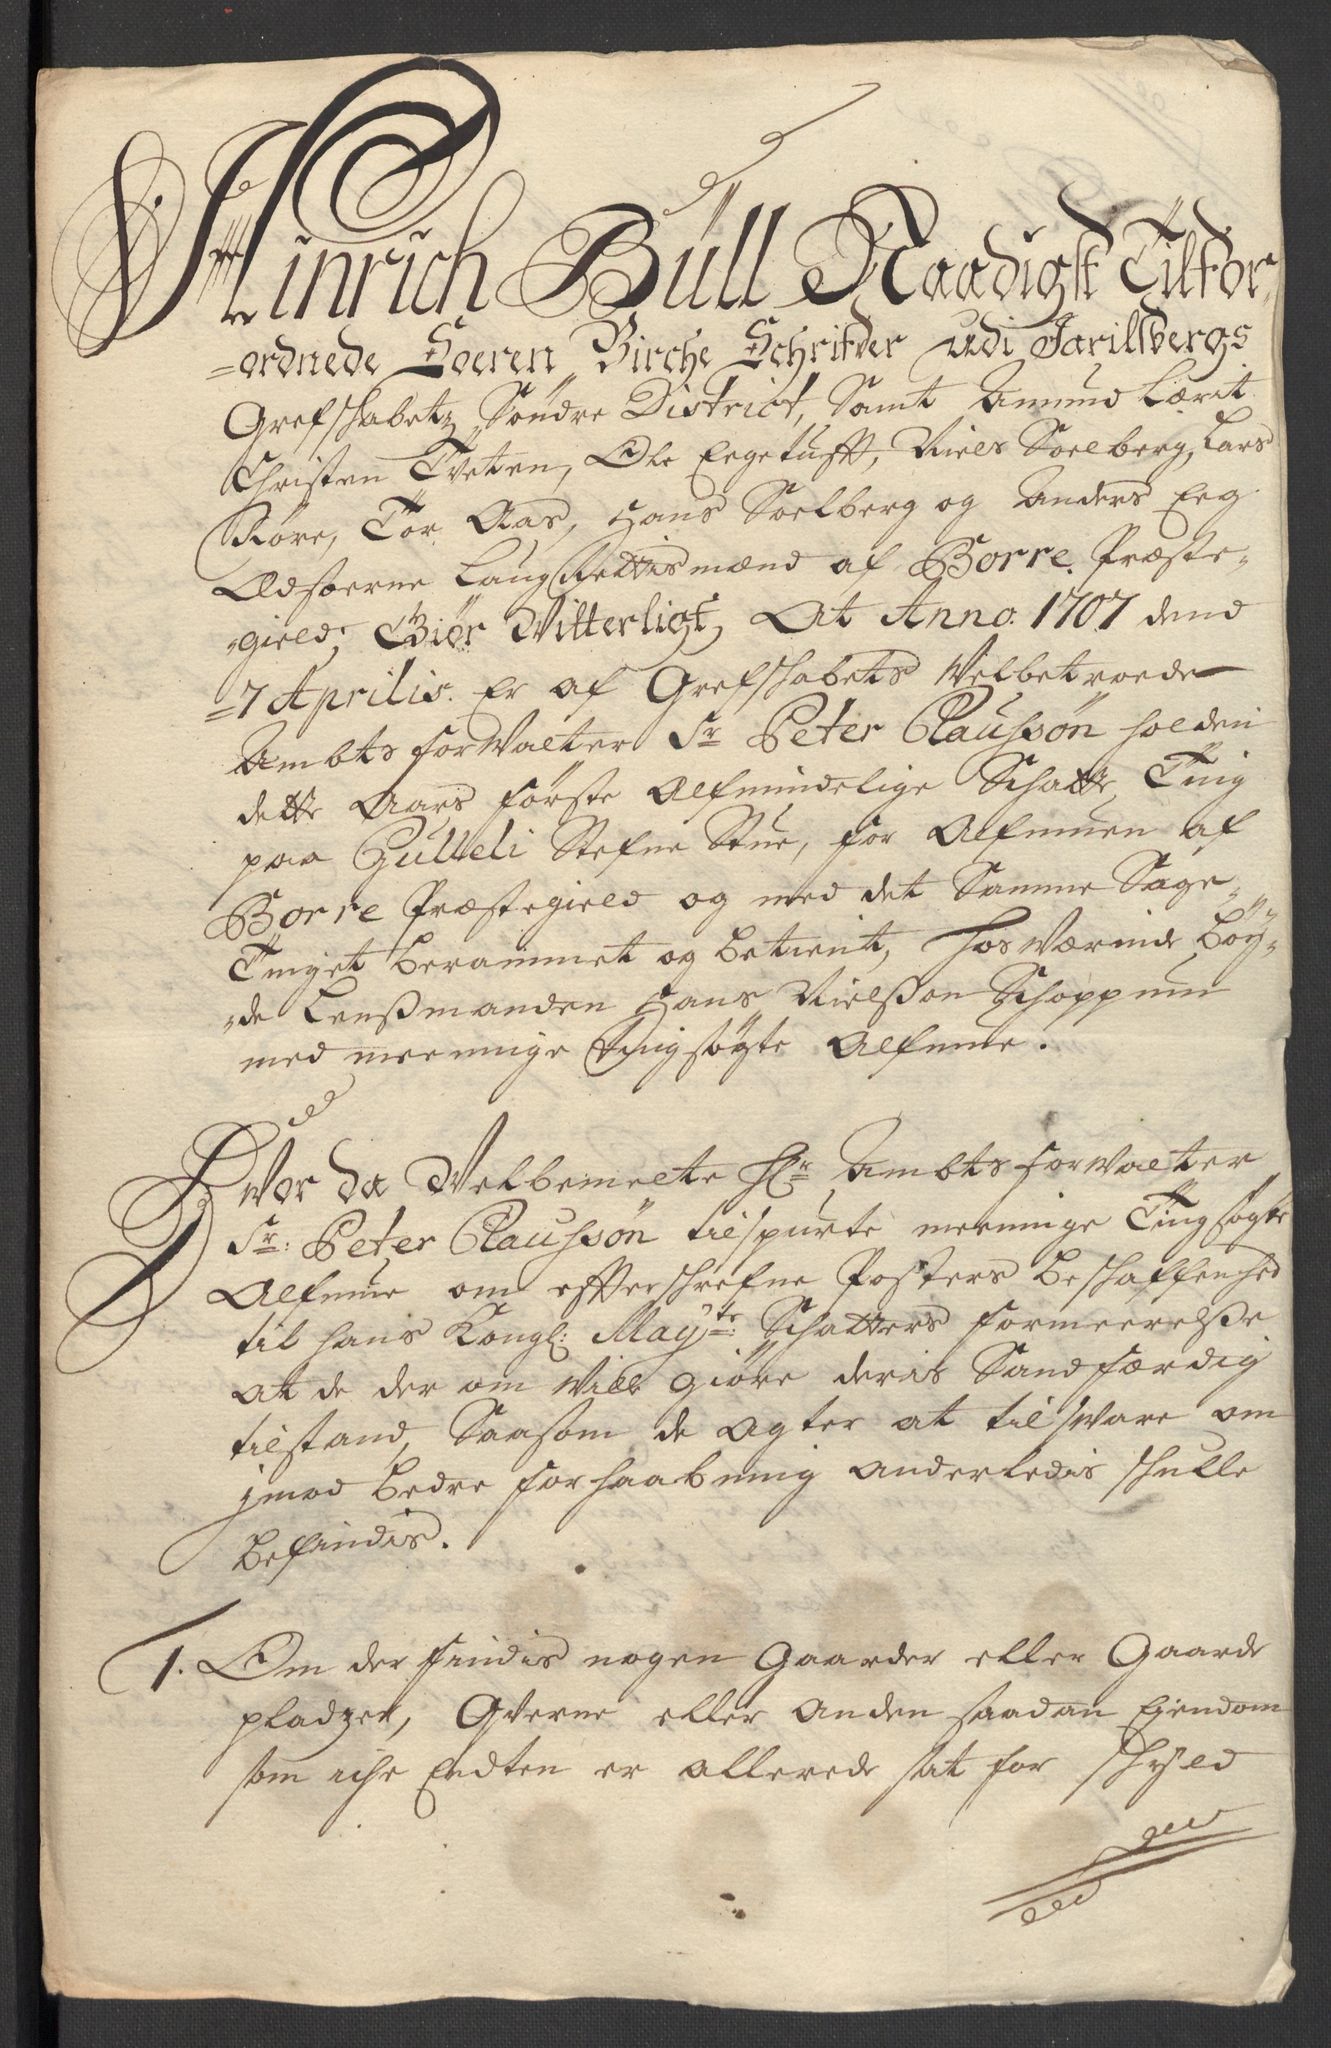 Hinrich Büll Naadigst Tilfor-
=ordnede Soeren Birche Schrifver udi Jarilsbergs
Grefschabetz Söndre District, Samt Amund Lærit
Christen Tveten, Ole Eegetufft, Niels Soelberg, Lars
Röre, Tor Aas, Hans Soelberg og Anders Eeg
Edsoerne Laug Rettismænd af Borre Præste-
-gield, Giör Vitterligt, At Anno 1707 dend
=7 Aprilis. Er af Grefschabets Velbetroede
Ambts forValter Sr Peter Claussön holden
dette Aars förste Almindelige Schatte Ting
paa Gulleli Stefne Stue, for Almuen af
Borre Præstegield og med det Samme Sage-
Tinget berammet og betient, hos Værende böy-
-de Lenßmanden Hans Nielßön Schoppum
med meenige Tingsögte Almue.
Hvor da Velbemelte Hr Ambts forValter
Sr: Peter Claussön tilspurte meenige Tingsögte
Almue om effterschrefne Posters beschaffenhed
til hans Kongl: Mayts: Schatters formeerelße
at de der om Ville giöre deris Sandfærdig
tilstand, Saasom de agter at tilsvare om
jmod bedre forhaabning anderledis schulle
befindis.
1. Om der findis nogen Gaarder eller Gaarde
pladzer, Qverne eller Anden saadan Ejendom
som iche Endten er allerede sat for schyld